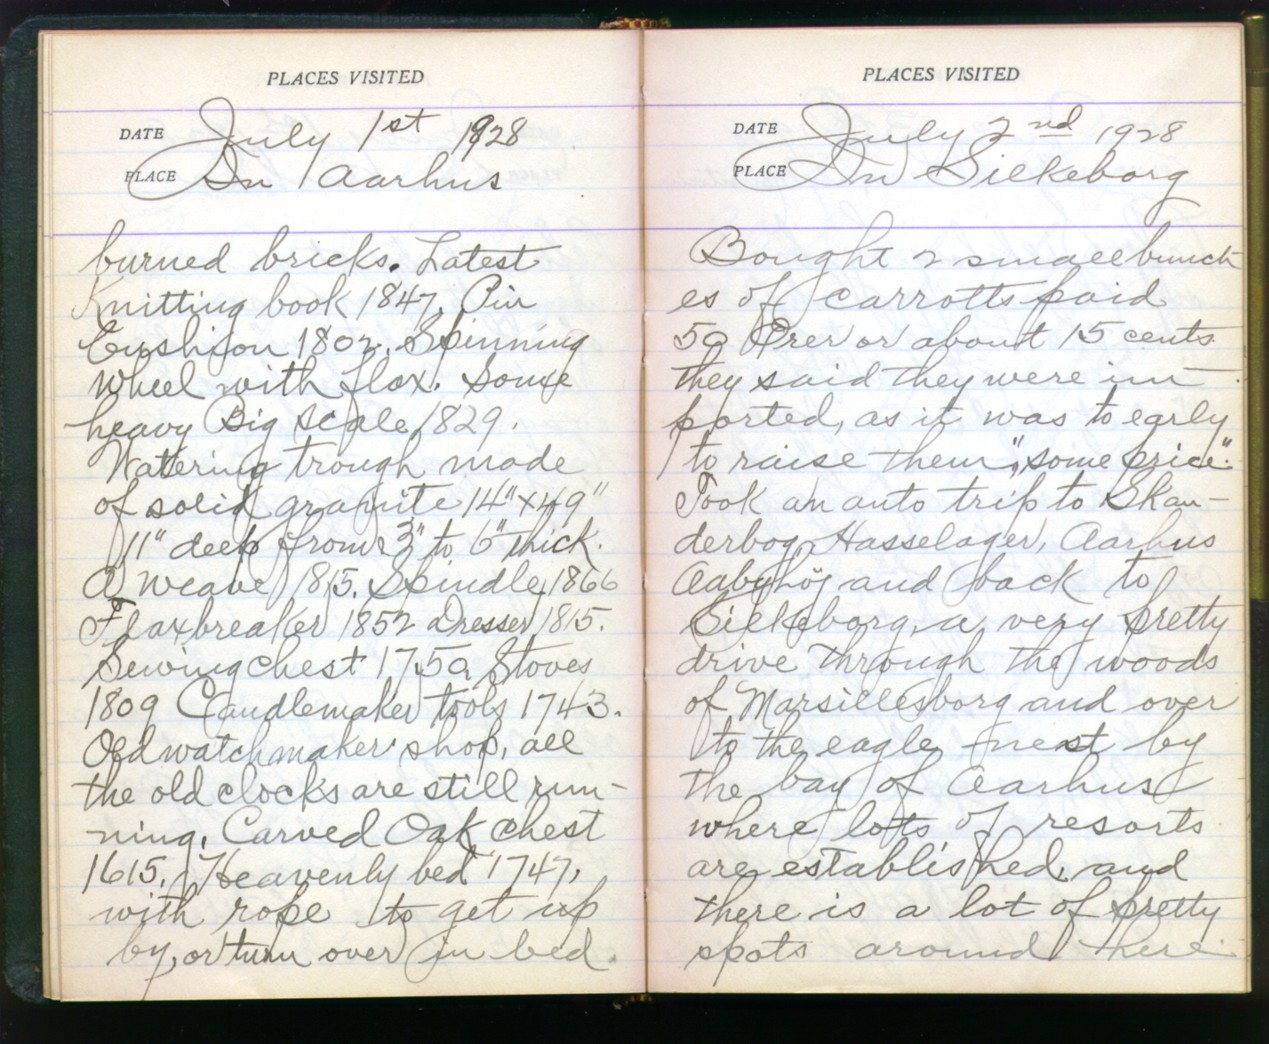 PLACES VISITED
DATE July 1st 1928
PLACE In Aarhus
burned bricks. Latest
Knitting book 1847, Pin
Cushion 1802. Spinning
Wheel with flax. Some
heavy Big scale 1829.
Wattering trough made
of solid granite 14"x49"
11" deep from 3" to 6" thick.
a weave 1815. Spindle 1866
Flaxbreaker 1852 Dresser 1815.
Sewing chest 1750, Stoves
1809 Candlemaker tools 1743.
Old watchmaker shop, all
the old clocks are still run-
ning, Carved Oak chest
1615, Heavenly bed 1747,
with rope to get up
by, or turn over in bed.
PLACES VISITED
DATE July 2nd 1928
PLACE In Silkeborg
Bought 2 small bunch
es of carrotts paid
50 Örer or about 15 cents
they said they were im-
ported, as it was to early
to raise them, "some price".
Took an auto trip to Skan-
derbog, Hasselager, Aarhus
Aabyhöj and back to
Silkeborg, a very pretty
drive through the woods
of Marsillesborg and over
to the eagle nest by
the bay of Aarhus
where lots of resorts
are established, and
there is a lot of pretty
spots around here.